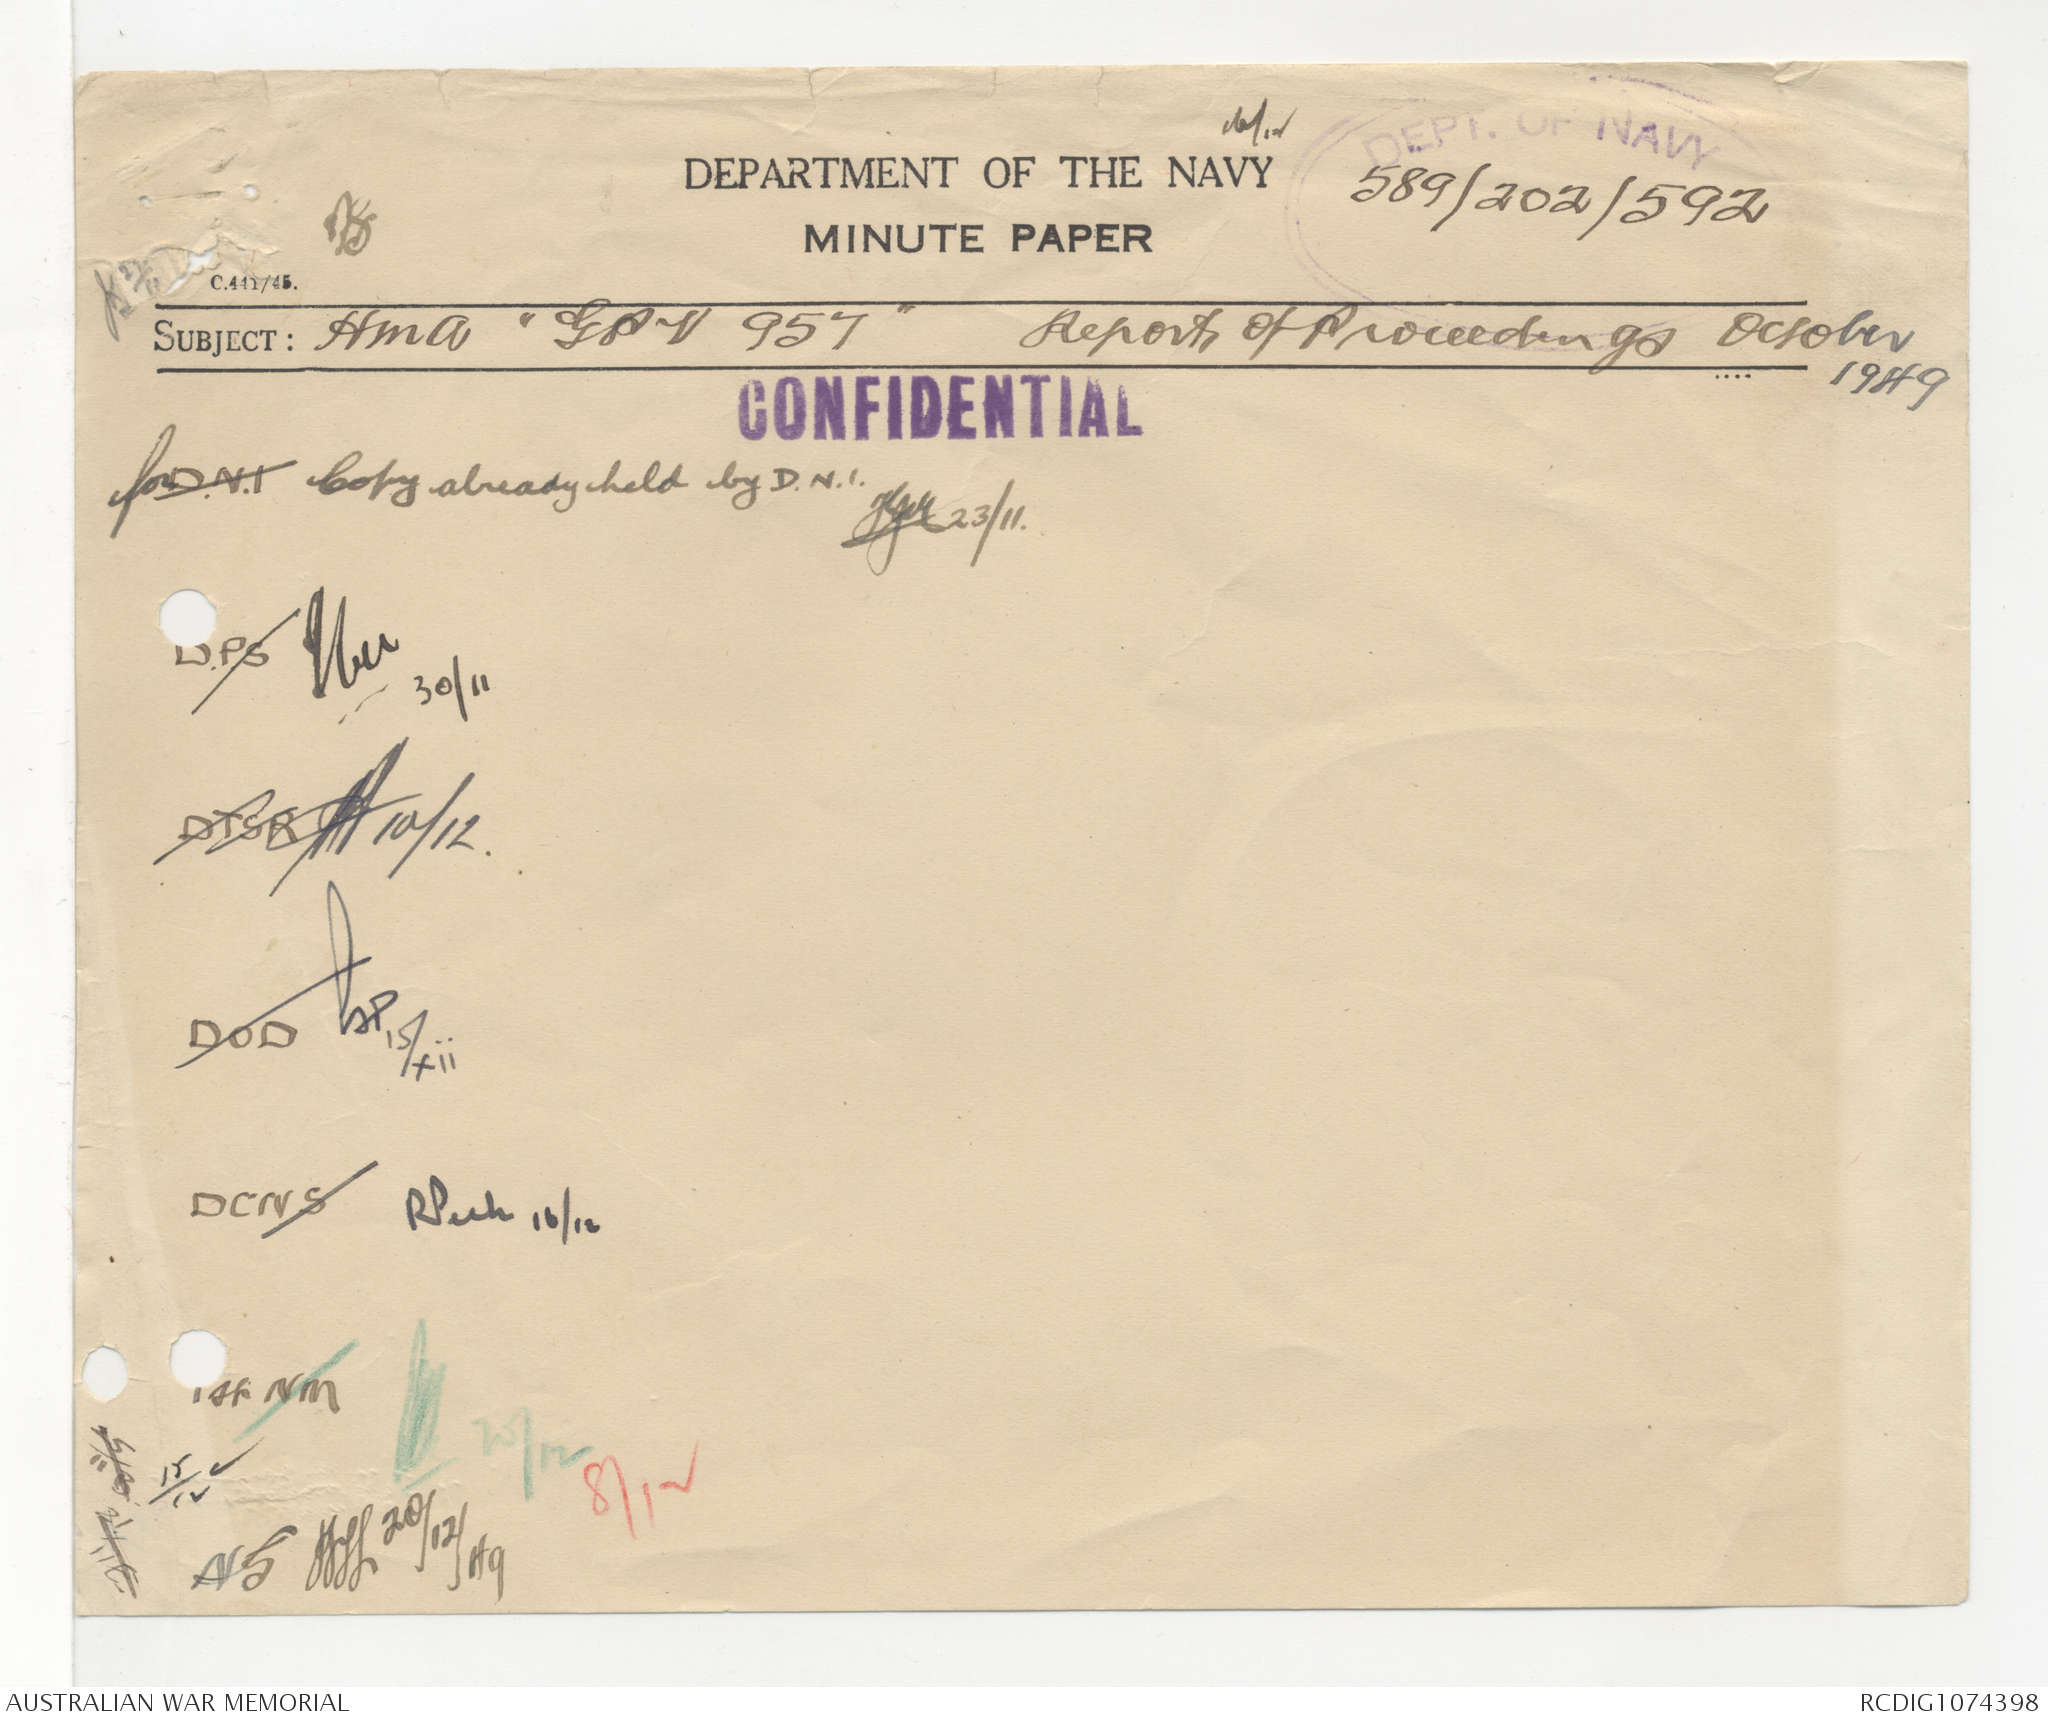 DEPT. OF NAVY
DEPARTMENT OF THE NAVY
589/202/592
MINUTE PAPER
C.441/45.
SUBJECT: HMA "GPV 957" Reports of Proceedings October
1949
CONFIDENTIAL
for D.N.I Copy already held by D.N.I.
23/11.
D.PS
30/11
DTSR 10/12.
DOD
15/xii
DCNS 16/12
NM
20/12
8/12
15/12
NS 20/12/49
AUSTRALIAN WAR MEMORIAL
RCDIG1074398